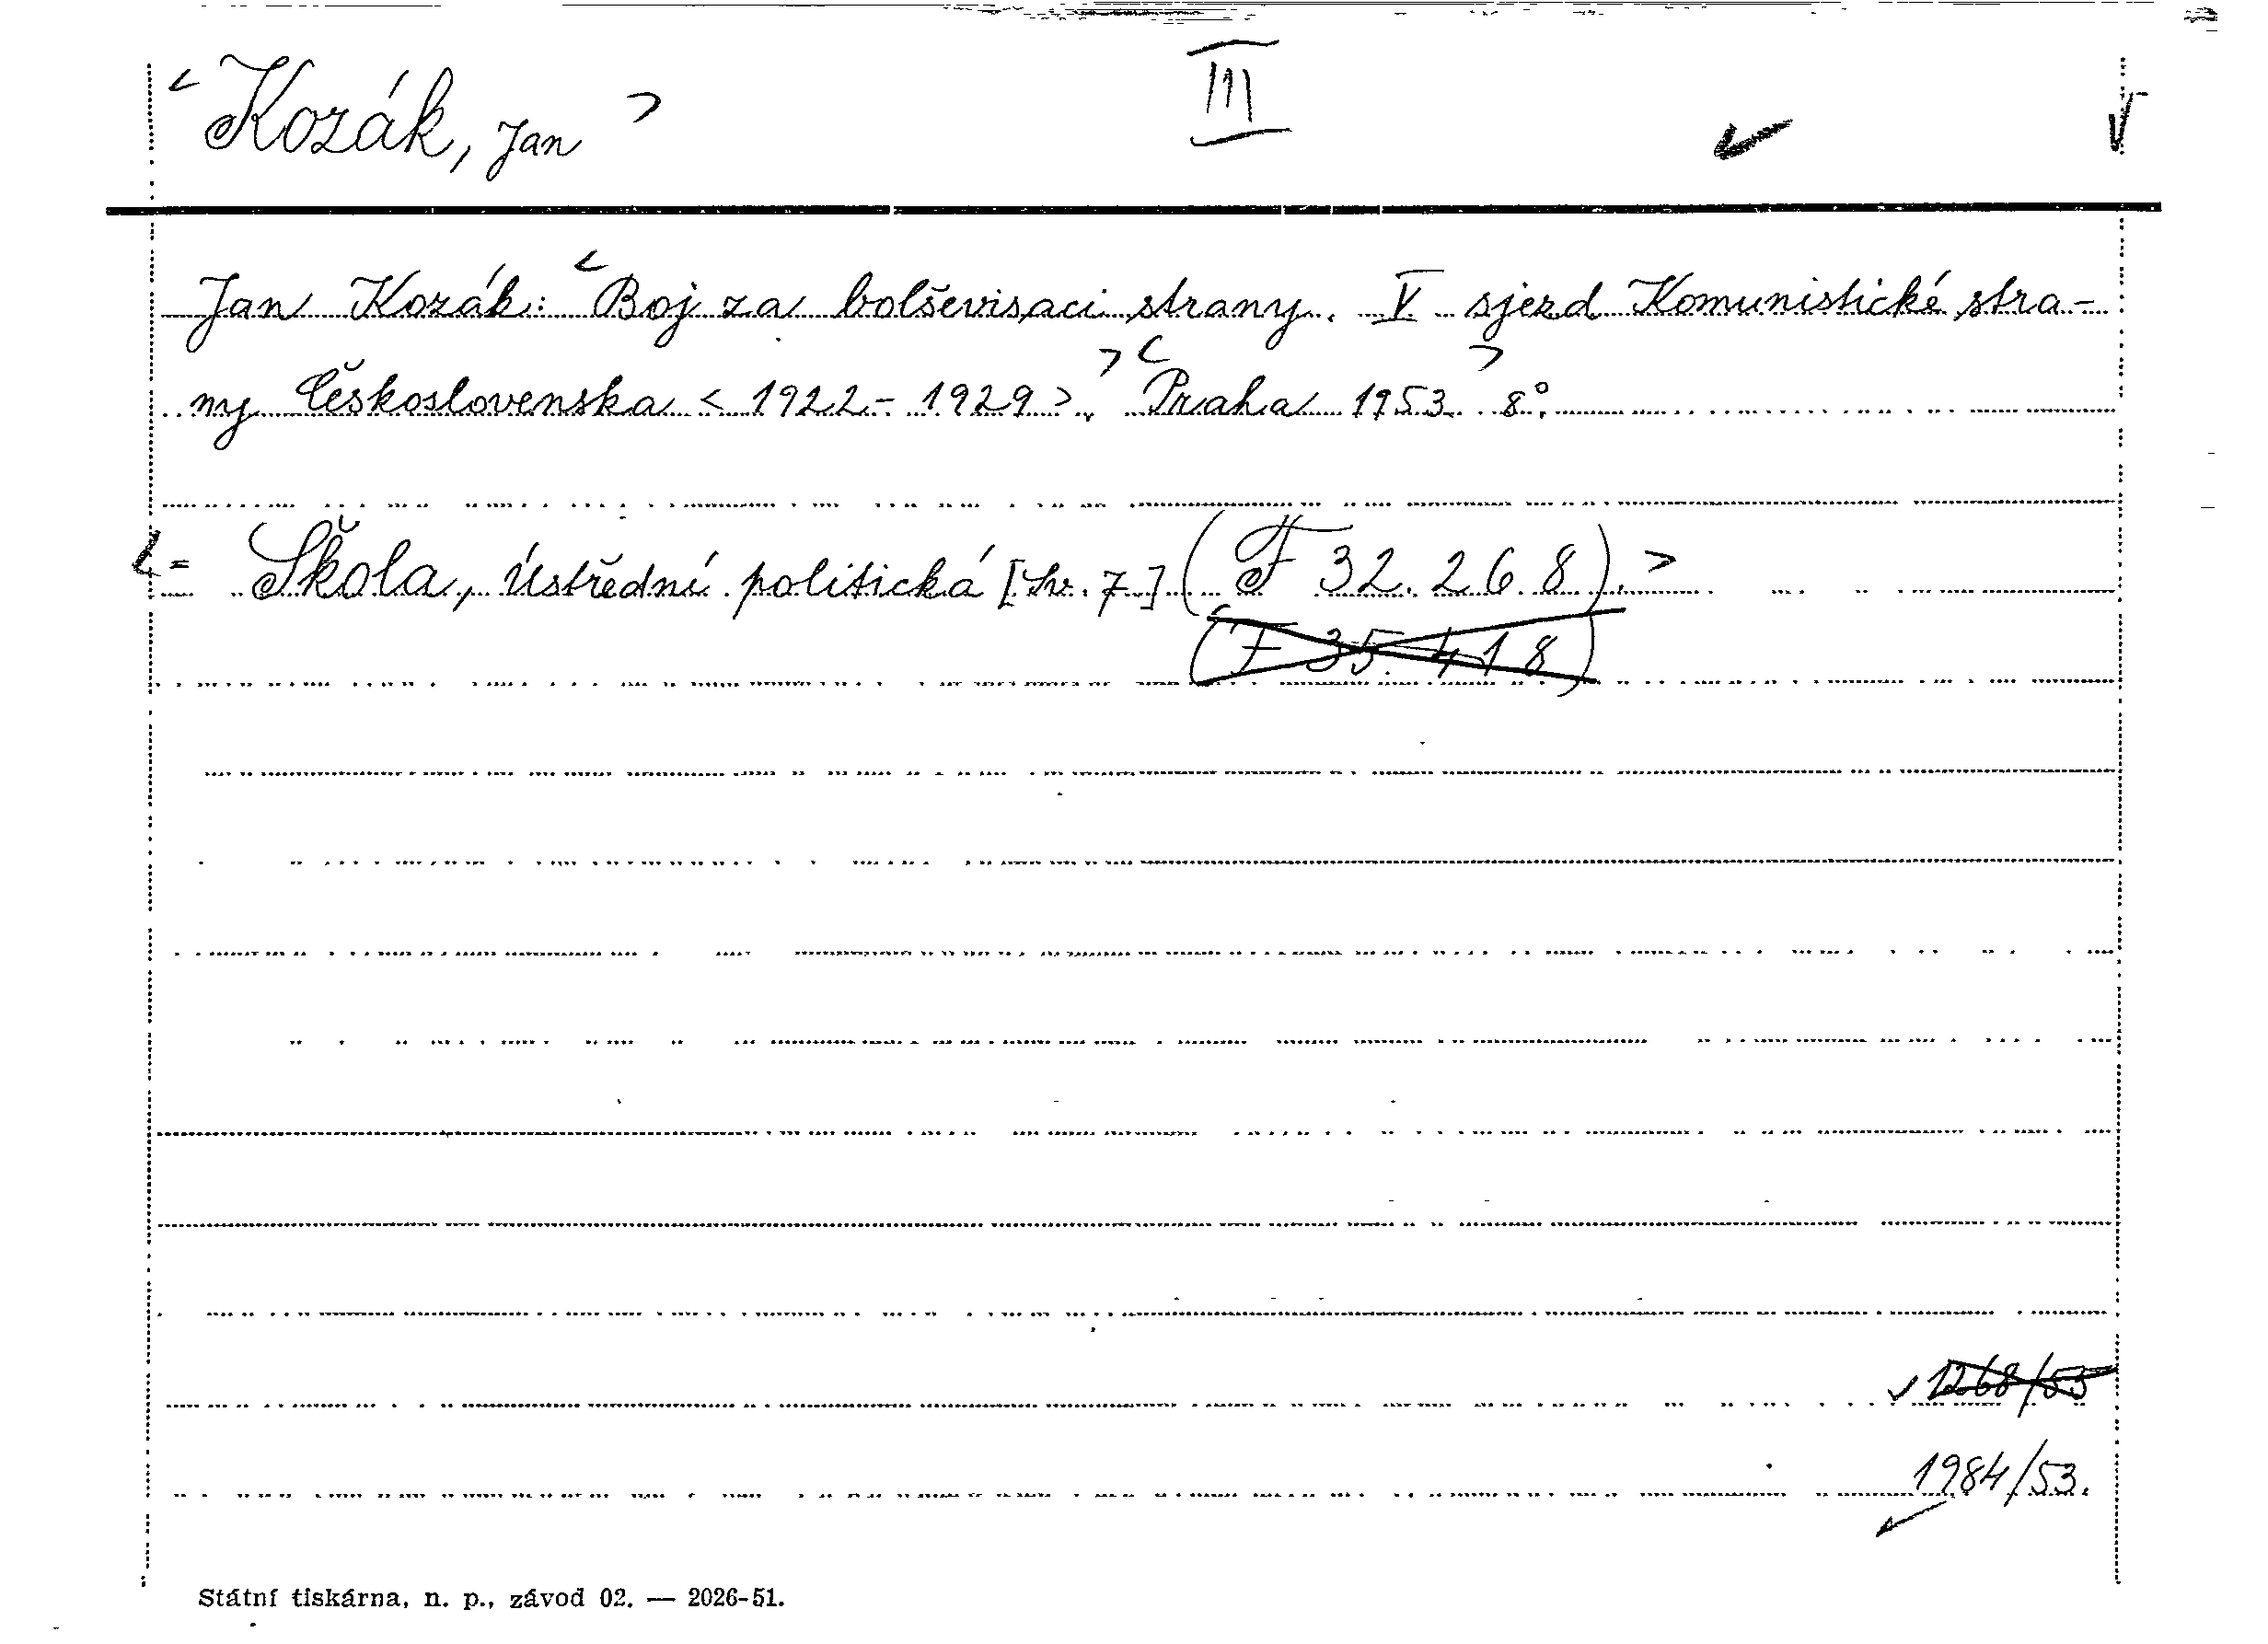 < Kozák, Jan > III
Jan Kozák: < Boj za bolševisaci strany. V. sjezd Komunistické stra-
ny Československa < 1922 - 1929 >. > < Praha 1953 > 8°.
< = Škola, Ústřední politická [Sv. 7] (F 32.268). >
(F 35.418)
1268/53
1984/53.
Státní tiskárna, n. p., závod 02. — 2026-51.